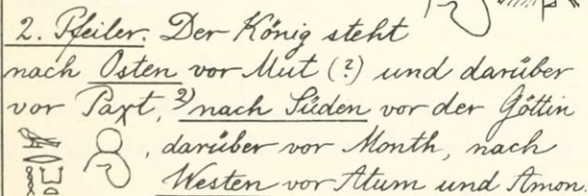 2. Pfeiler. Der König steht
nach Osten vor Mut (?) und darüber
vor Paxt, 2) nach Süden vor der Göttin
, darüber vor Month, nach
Westen vor Atum und Amon